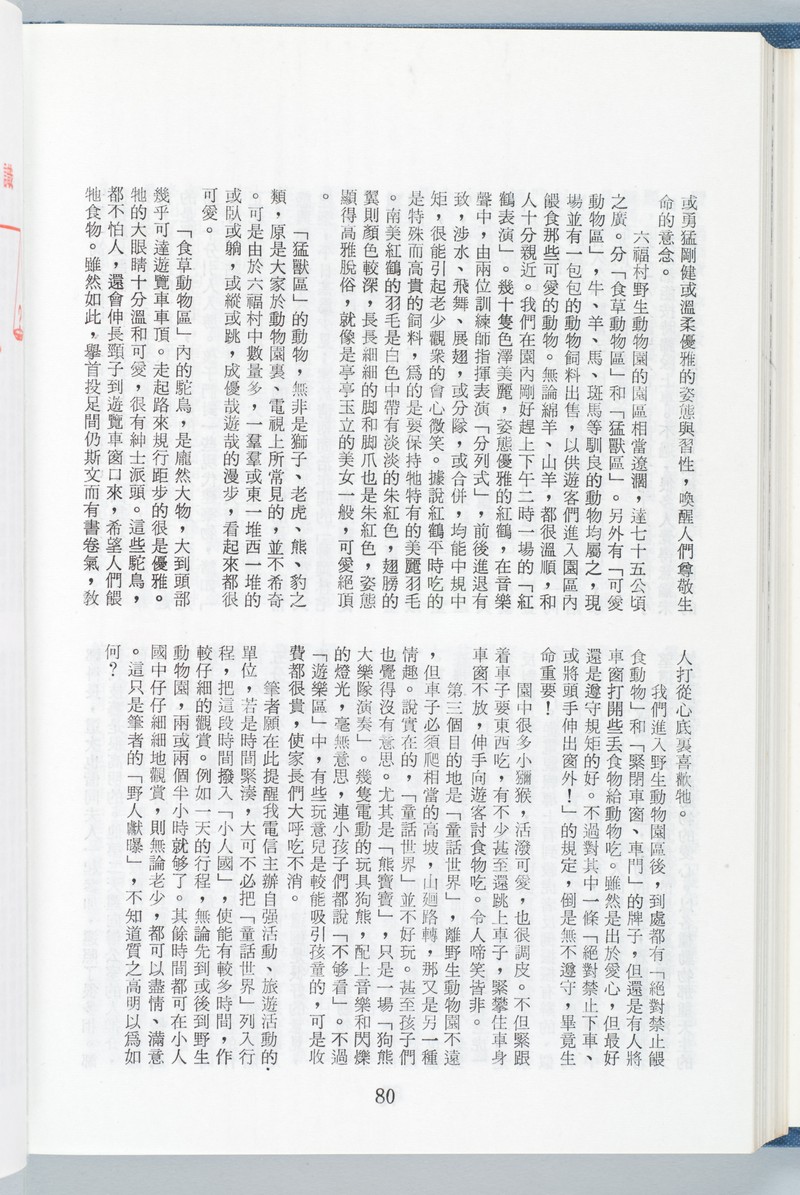 或勇猛剛健或溫柔優雅的姿態與習性，喚醒人們尊敬生
命的意念。
六福村野生動物園的園區相當遼濶，達七十五公頃
之廣。分「食草動物區」和「猛獸區」。另外有「可愛
動物區」，牛、羊、馬、斑馬等馴良的動物均屬之，現
場並有一包包的動物飼料出售，以供遊客們進入園區內
餵食那些可愛的動物。無論綿羊、山羊，都很溫順，和
人十分親近。我們在園內剛好趕上下午二時一場的「紅
鶴表演」。幾十隻色澤美麗，姿態優雅的紅鶴，在音樂
聲中，由兩位訓練師指揮表演「分列式」，前後進退有
致，涉水、飛舞、展翅，或分隊，或合併，均能中規中
矩，很能引起老少觀衆的會心微笑。據說紅鶴平時吃的
是特殊而高貴的飼料，爲的是要保持牠特有的美麗羽毛
。南美紅鶴的羽毛是白色中帶有淡淡的朱紅色，翅膀的
翼則顏色較深，長長細細的脚和脚爪也是朱紅色，姿態
顯得高雅脫俗，就像是亭亭玉立的美女一般，可愛絕頂
。
「猛獸區」的動物，無非是獅子、老虎、熊、豹之
類，原是大家於動物園裏、電視上所常見的，並不希奇
。可是由於六福村中數量多，一羣羣或東一堆西一堆的
或臥或躺，或縱或跳，成優哉遊哉的漫步，看起來都很
可愛。
「食草動物區」內的駝鳥，是龐然大物，大到頭部
幾乎可達遊覽車車頂。走起路來規行距步的很是優雅。
牠的大眼睛十分溫和可愛，很有紳士派頭。這些駝鳥，
都不怕人，還會伸長頸子到遊覽車窗口來，希望人們餵
牠食物。雖然如此，擧首投足間仍斯文而有書卷氣，敎
人打從心底裏喜歡牠。
我們進入野生動物園區後，到處都有「絕對禁止餵
食動物」和「緊閉車窗、車門」的牌子，但還是有人將
車窗打開些丟食物給動物吃。雖然是出於愛心，但最好
還是遵守規矩的好。不過對其中一條「絕對禁止下車、
或將頭手伸出窗外！」的規定，倒是無不遵守，畢竟生
命重要！
園中很多小獼猴，活潑可愛，也很調皮。不但緊跟
着車子要東西吃，有不少甚至還跳上車子，緊攀住車身
車窗不放，伸手向遊客討食物吃。令人啼笑皆非。
第三個目的地是「童話世界」，離野生動物園不遠
，但車子必須爬相當的高坡，山廻路轉，那又是另一種
情趣。說實在的，「童話世界」並不好玩。甚至孩子們
也覺得沒有意思。尤其是「熊寶寶」，只是一場「狗熊
大樂隊演奏」。幾隻電動的玩具狗熊，配上音樂和閃爍
的燈光，毫無意思，連小孩子們都說「不够看」。不過
「遊樂區」中，有些玩意兒是較能吸引孩童的，可是收
費都很貴，使家長們大呼吃不消。
筆者願在此提醒我電信主辦自强活動、旅遊活動的
單位，若是時間緊湊，大可不必把「童話世界」列入行
程，把這段時間撥入「小人國」，使能有較多時間，作
較仔細的觀賞。例如一天的行程，無論先到或後到野生
動物園，兩或兩個半小時就够了。其餘時間都可在小人
國中仔仔細細地觀賞，則無論老少，都可以盡情、滿意
。這只是筆者的「野人獻曝」，不知道質之高明以爲如
何？
80